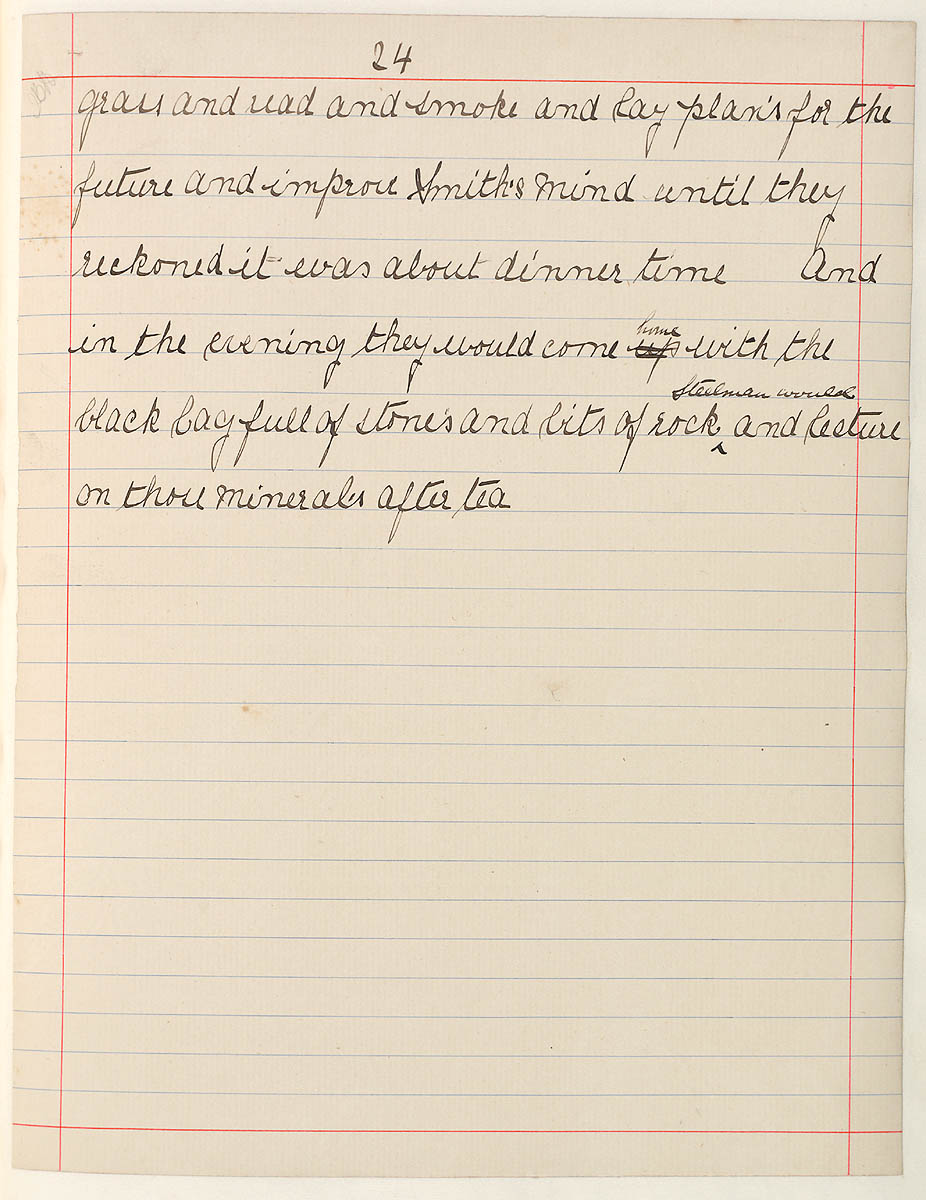 24
grass and read and smoke and lay plans for the
future and improve Smith's mind until they
reckoned it was about dinner time And
home
in the evening they would come up with the
Steelman would
black bag full of stones and bits of rock, and lecture
on those minerals after tea